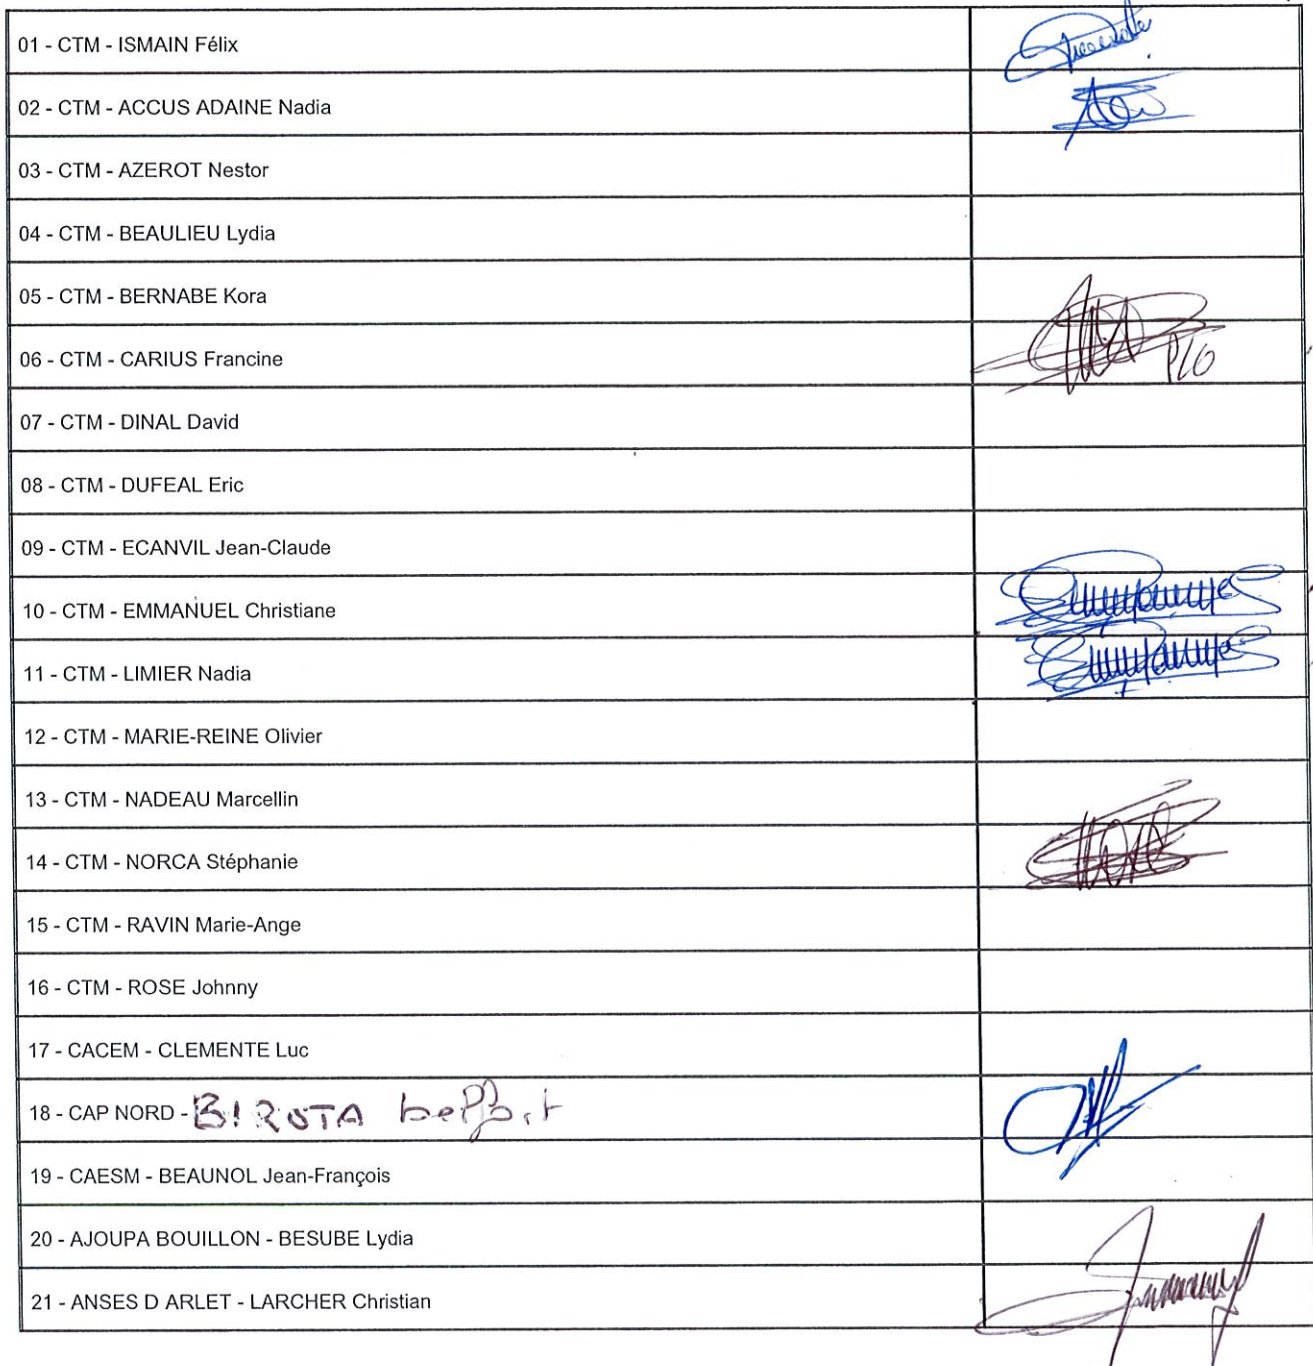 01 - CTM - ISMAIN Félix
02 - CTM - ACCUS ADAINE Nadia
03 - CTM - AZEROT Nestor
04 - CTM - BEAULIEU Lydia
05 - CTM - BERNABE Kora
06 - CTM - CARIUS Francine
P/O
07 - CTM - DINAL David
08 - CTM - DUFEAL Eric
09 - CTM - ECANVIL Jean-Claude
10 - CTM - EMMANUEL Christiane
11 - CTM - LIMIER Nadia
12 - CTM - MARIE-REINE Olivier
13 - CTM - NADEAU Marcellin
14 - CTM - NORCA Stéphanie
15 - CTM - RAVIN Marie-Ange
16 - CTM - ROSE Johnny
17 - CACEM - CLEMENTE Luc
18 - CAP NORD - BIROTA belfort
19 - CAESM - BEAUNOL Jean-François
20 - AJOUPA BOUILLON - BESUBE Lydia
21 - ANSES D ARLET - LARCHER Christian